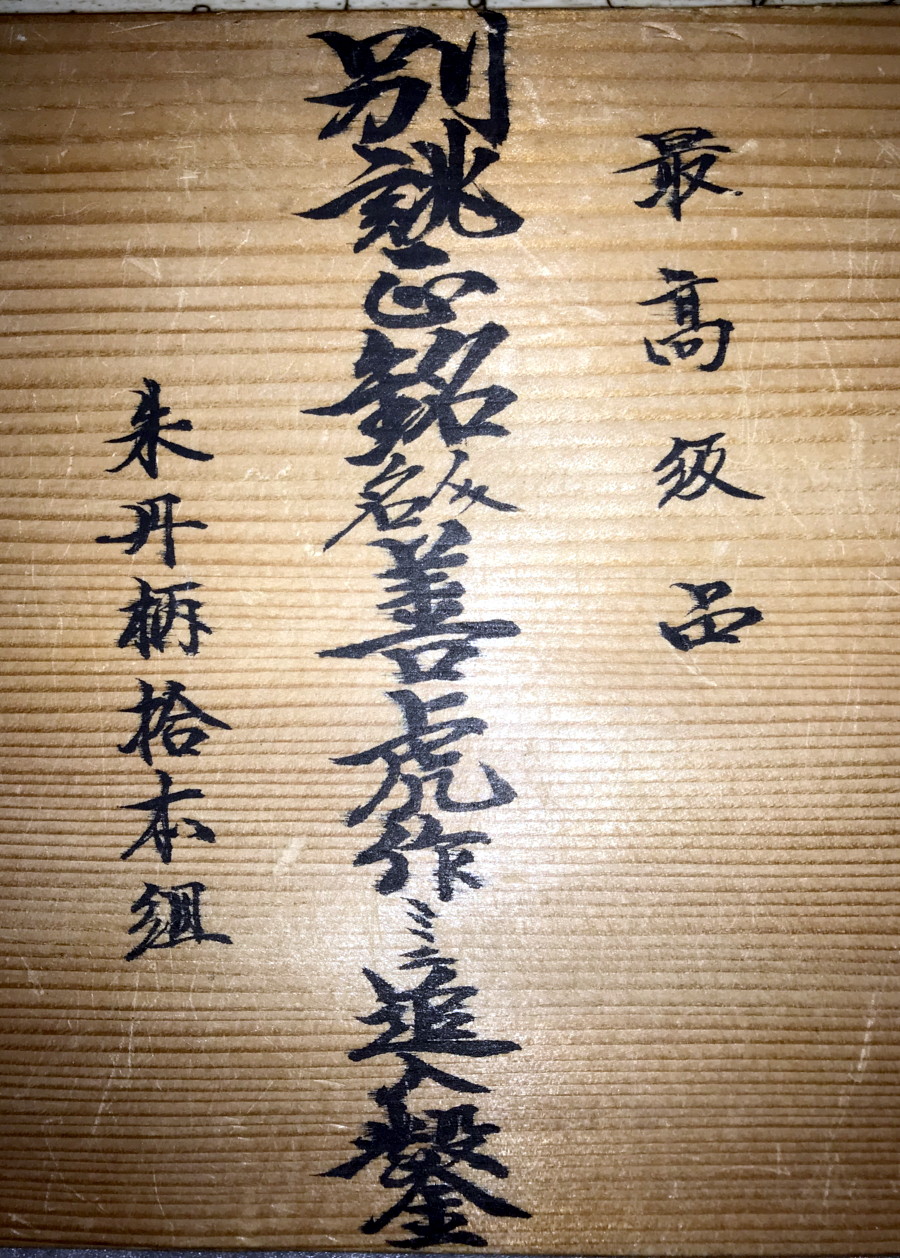 最高級品
別誂正銘名人善虎作追入鑿
朱丹柄拾本組